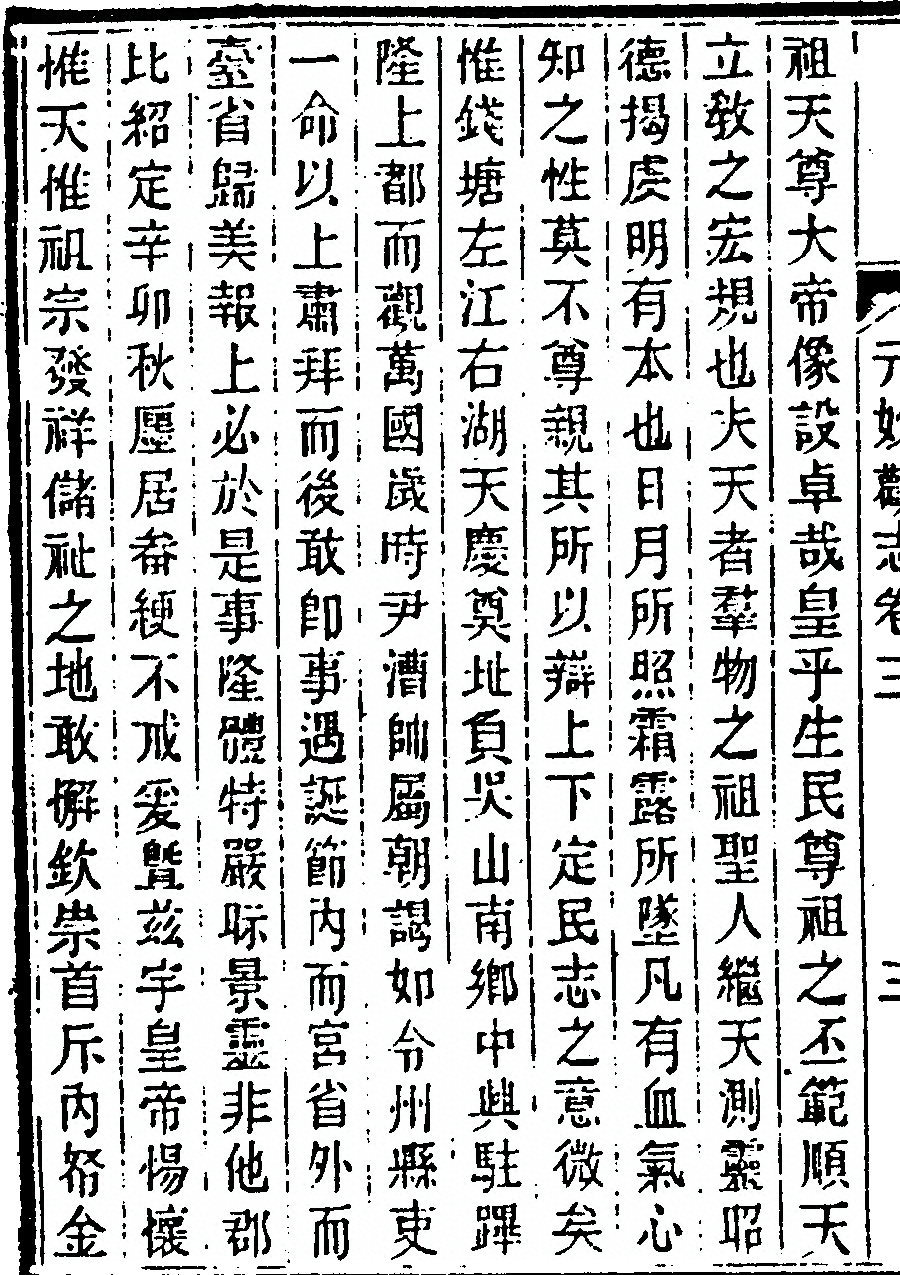 元妙觀志卷三 三
祖天尊大帝像設卓哉皇乎生民尊祖之丕範順天
立教之宏規也夫天者羣物之祖聖人繼天測靈昭
德揭虔明有本也日月所照霜露所墜凡有血氣心
知之性莫不尊親其所以辯上下定民志之意微矣
惟錢塘左江右湖天慶奠址負吳山南鄉中興駐蹕
隆上都而觀萬國歲時尹漕帥屬朝謁如令州縣吏
一命以上肅拜而後敢卽事遇誕節內而宮省外而
臺省歸美報上必於是事隆體特嚴眎景靈非他郡
比紹定辛卯秋鄽居畚綆不戒爰曁茲宇皇帝惕懷
惟天惟祖宗發祥儲祉之地敢懈欽崇首斥內帑金